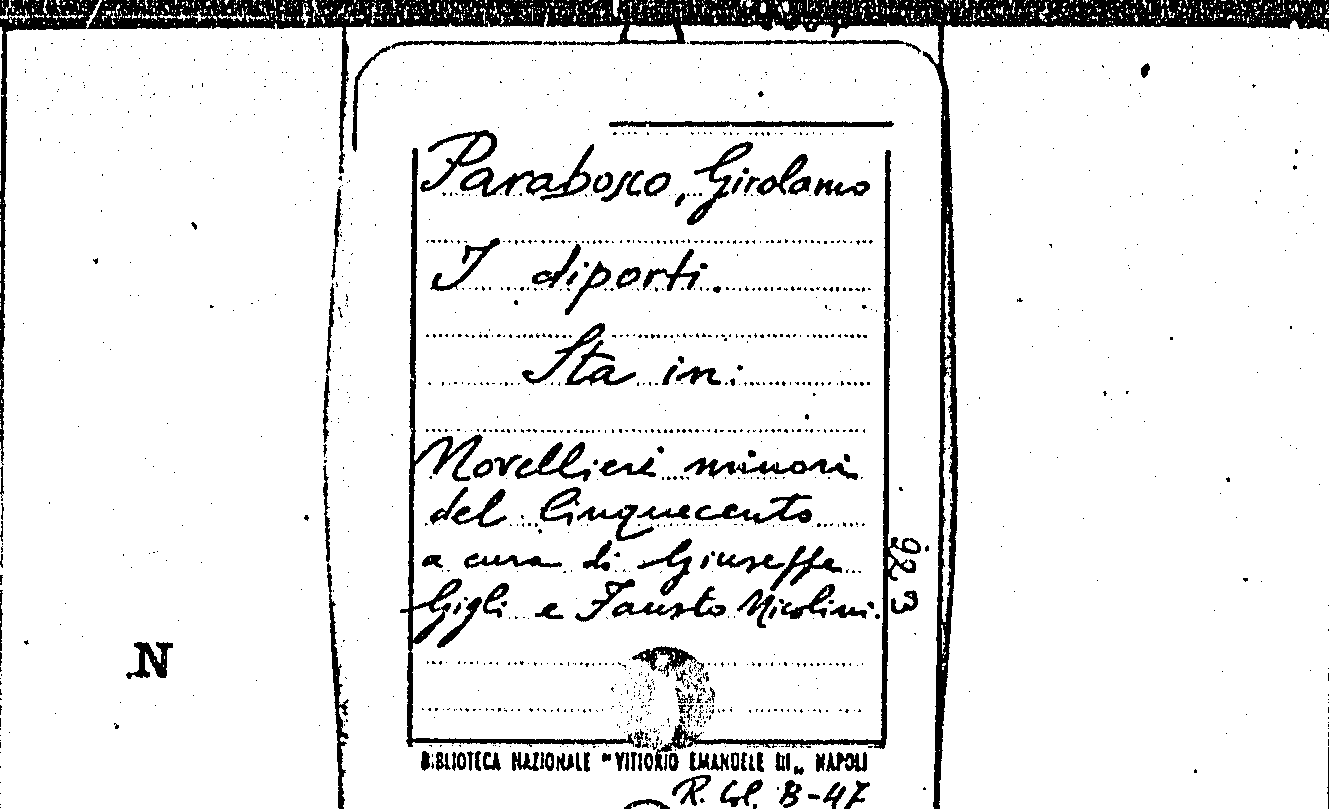 Parabosco, Girolamo
I diporti.
Sta in:
Novellieri minori
del Cinquecento
a cura di Giuseppe
Gigli e Fausto Nicolini.
923
N
BIBLIOTECA NAZIONALE "VITTORIO EMANUELE III„ NAPOLI
R. Col. B-47